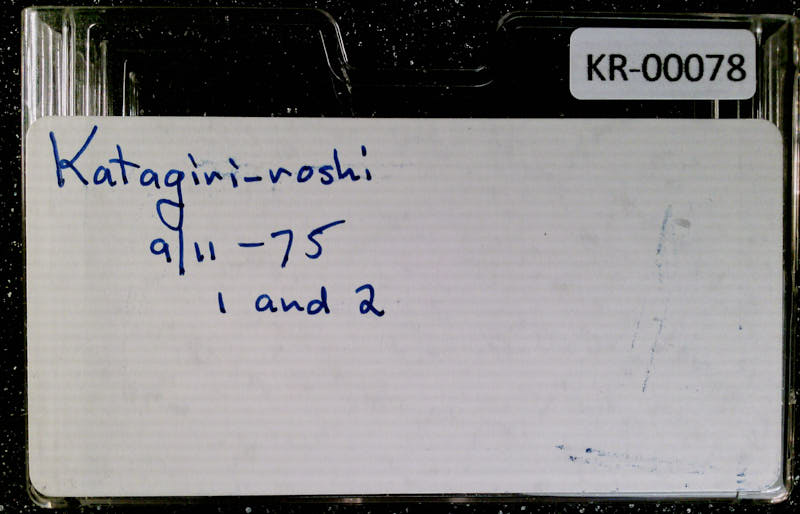 KR-00078
Katagiri-roshi
9/11-75
1 and 2